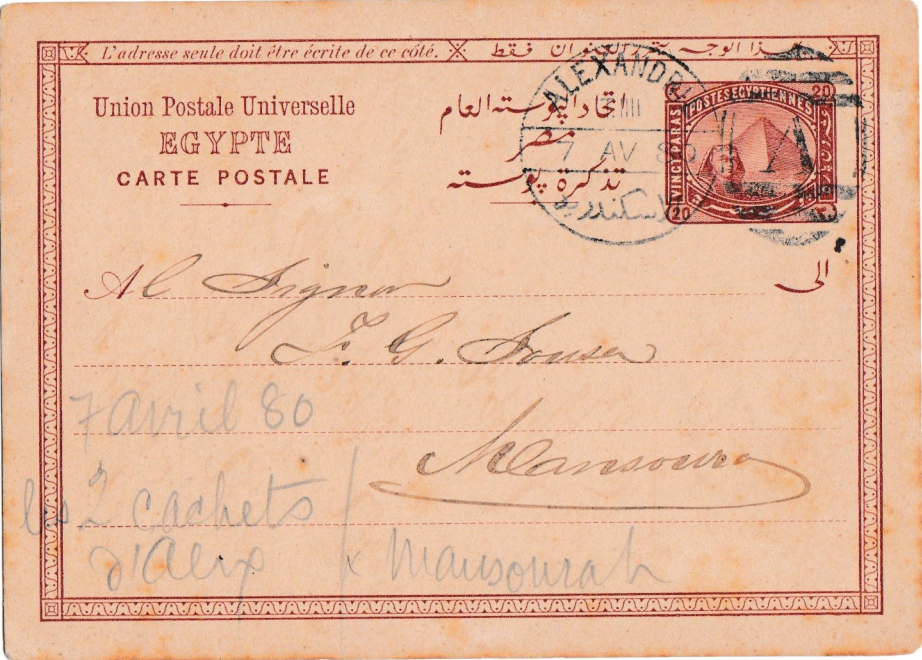 L'adresse seule doit être écrite de ce côté.
هذا الوجه فقط
Union Postale Universelle
EGYPTE
CARTE POSTALE
اتحاد البوسته العام
مصر
تذكرة بوسته
ALEXANDRI
7 AV 80
اسكندريه
POSTES EGYPTIENNES
VINGT PARAS
20
20
A
الى
Al Signor
F. G. Sousa
Mansoura
7 avril 80
les 2 cachets
d'Alex
x Mansourah